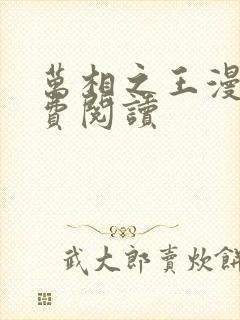 萬相之王漫
費閱讀
武大郎賣炊餅